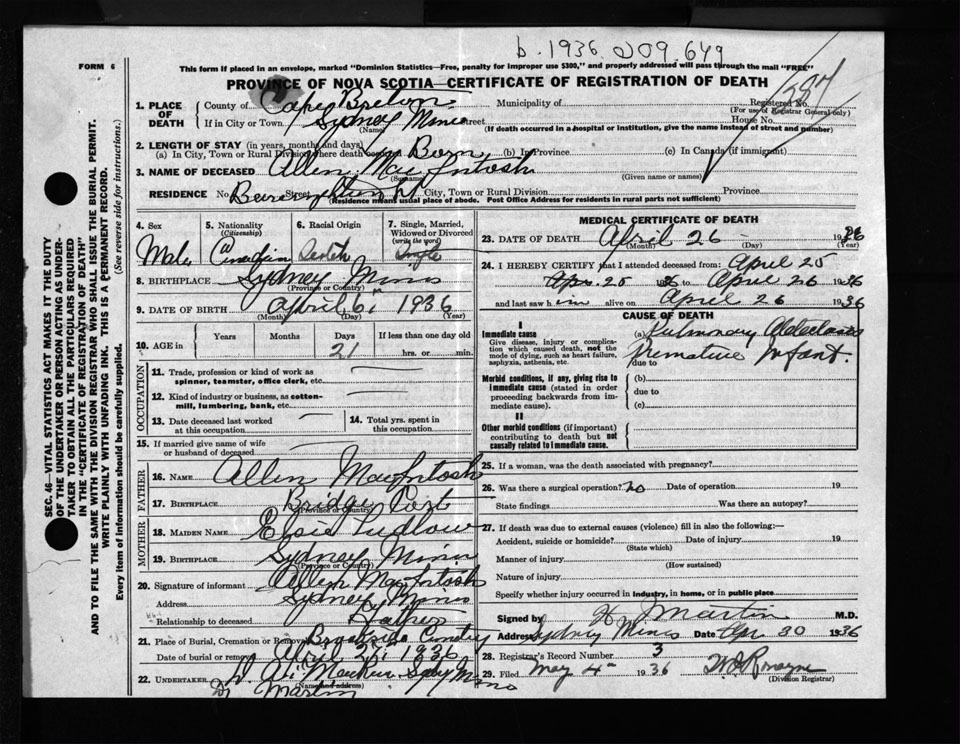 b. 1936 209 649
FORM 6
This form if placed in an envelope, marked "Dominion Statistics—Free, penalty for improper use $300," and properly addressed will pass through the mail "FREE"
PROVINCE OF NOVA SCOTIA—CERTIFICATE OF REGISTRATION OF DEATH
1. PLACE OF DEATH
County of Cape Breton Municipality of Registered No.
(For use of Registrar General only)
If in City or Town Sydney Mines Street House No.
(Name) (If death occurred in a hospital or institution, give the name instead of street and number)
2. LENGTH OF STAY (in years, months, and days)
(a) In City, Town or Rural Division where death occurred Born (b) In Province (c) In Canada (if immigrant)
3. NAME OF DECEASED Allen MacIntosh
(Surname) (Given name or names)
RESIDENCE No. Street City, Town or Rural Division Province
(Residence means usual place of abode. Post Office Address for residents in rural parts not sufficient)
4. Sex 5. Nationality (Citizenship) 6. Racial Origin 7. Single, Married, Widowed or Divorced (write the word)
Male Canadian Scotch Single
8. BIRTHPLACE Sydney Mines
(Province or Country)
9. DATE OF BIRTH April 6 1936
(Month) (Day) (Year)
10. AGE in Years Months Days If less than one day old
21 hrs. or min.
OCCUPATION
11. Trade, profession or kind of work as spinner, teamster, office clerk, etc.
12. Kind of industry or business, as cotton-mill, lumbering, bank, etc.
13. Date deceased last worked at this occupation 14. Total yrs. spent in this occupation
15. If married give name of wife or husband of deceased
FATHER
16. NAME Allen MacIntosh
17. BIRTHPLACE Bridge Port
(Province or Country)
MOTHER
18. MAIDEN NAME Elsie Ludlow
19. BIRTHPLACE Sydney Mines
(Province or Country)
20. Signature of informant Allen MacIntosh
Address Sydney Mines
Relationship to deceased Father
21. Place of Burial, Cremation or Removal Brookside Cemetery
Date of burial or removal April 1936
22. UNDERTAKER
(Name and address)
MEDICAL CERTIFICATE OF DEATH
23. DATE OF DEATH April 26 1936
(Month) (Day) (Year)
24. I HEREBY CERTIFY that I attended deceased from: April 25
Apr. 25 1936 to April 26 1936
and last saw him alive on April 26 1936
CAUSE OF DEATH
I
Immediate cause
Give disease, injury or complication which caused death, not the mode of dying, such as heart failure, asphyxia, asthenia, etc.
(a) Pulmonary Atelectasis
Premature Infant
due to
Morbid conditions, if any, giving rise to immediate cause (stated in order proceeding backwards from immediate cause).
(b)
due to
(c)
II
Other morbid conditions (if important) contributing to death but not causally related to immediate cause.
25. If a woman, was the death associated with pregnancy?
26. Was there a surgical operation? no Date of operation 19
State findings Was there an autopsy?
27. If death was due to external causes (violence) fill in also the following:—
Accident, suicide or homicide? Date of injury 19
(State which)
Manner of injury
(How sustained)
Nature of injury
Specify whether injury occurred in industry, in home, or in public place
Signed by H Martin M.D.
Address Sydney Mines Date Apr 30 1936
28. Registrar's Record Number 3
29. Filed May 4th 1936
(Division Registrar)
SEC. 46—VITAL STATISTICS ACT MAKES IT THE DUTY
OF THE UNDERTAKER OR PERSON ACTING AS UNDER-
TAKER TO OBTAIN ALL THE PARTICULARS REQUIRED
IN THE "CERTIFICATE OF REGISTRATION OF DEATH"
AND TO FILE THE SAME WITH THE DIVISION REGISTRAR WHO SHALL ISSUE THE BURIAL PERMIT.
WRITE PLAINLY WITH UNFADING INK. THIS IS A PERMANENT RECORD.
Every item of information should be carefully supplied. (See reverse side for instructions.)